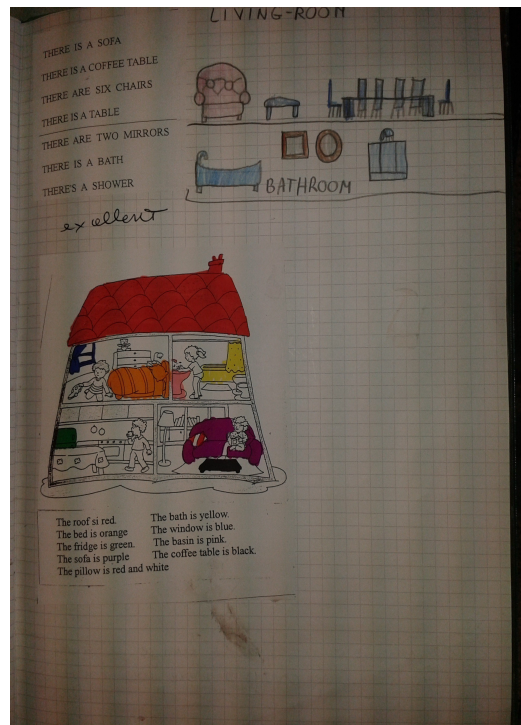 LIVING-ROOM
THERE IS A SOFA
THERE IS A COFFEE TABLE
THERE ARE SIX CHAIRS
THERE IS A TABLE
THERE ARE TWO MIRRORS
THERE IS A BATH
THERE'S A SHOWER
BATHROOM
excellent
The roof si red.
The bed is orange
The fridge is green.
The sofa is purple
The pillow is red and white
The bath is yellow.
The window is blue.
The basin is pink.
The coffee table is black.